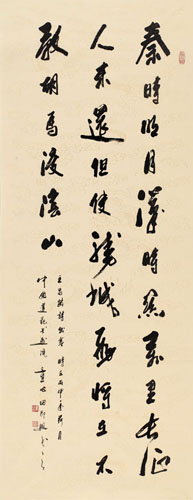 秦時明月漢時關萬里長征
人未還但使龍城飛將在不
教胡馬渡陰山
王昌齡詩出塞 時在丙申
中國